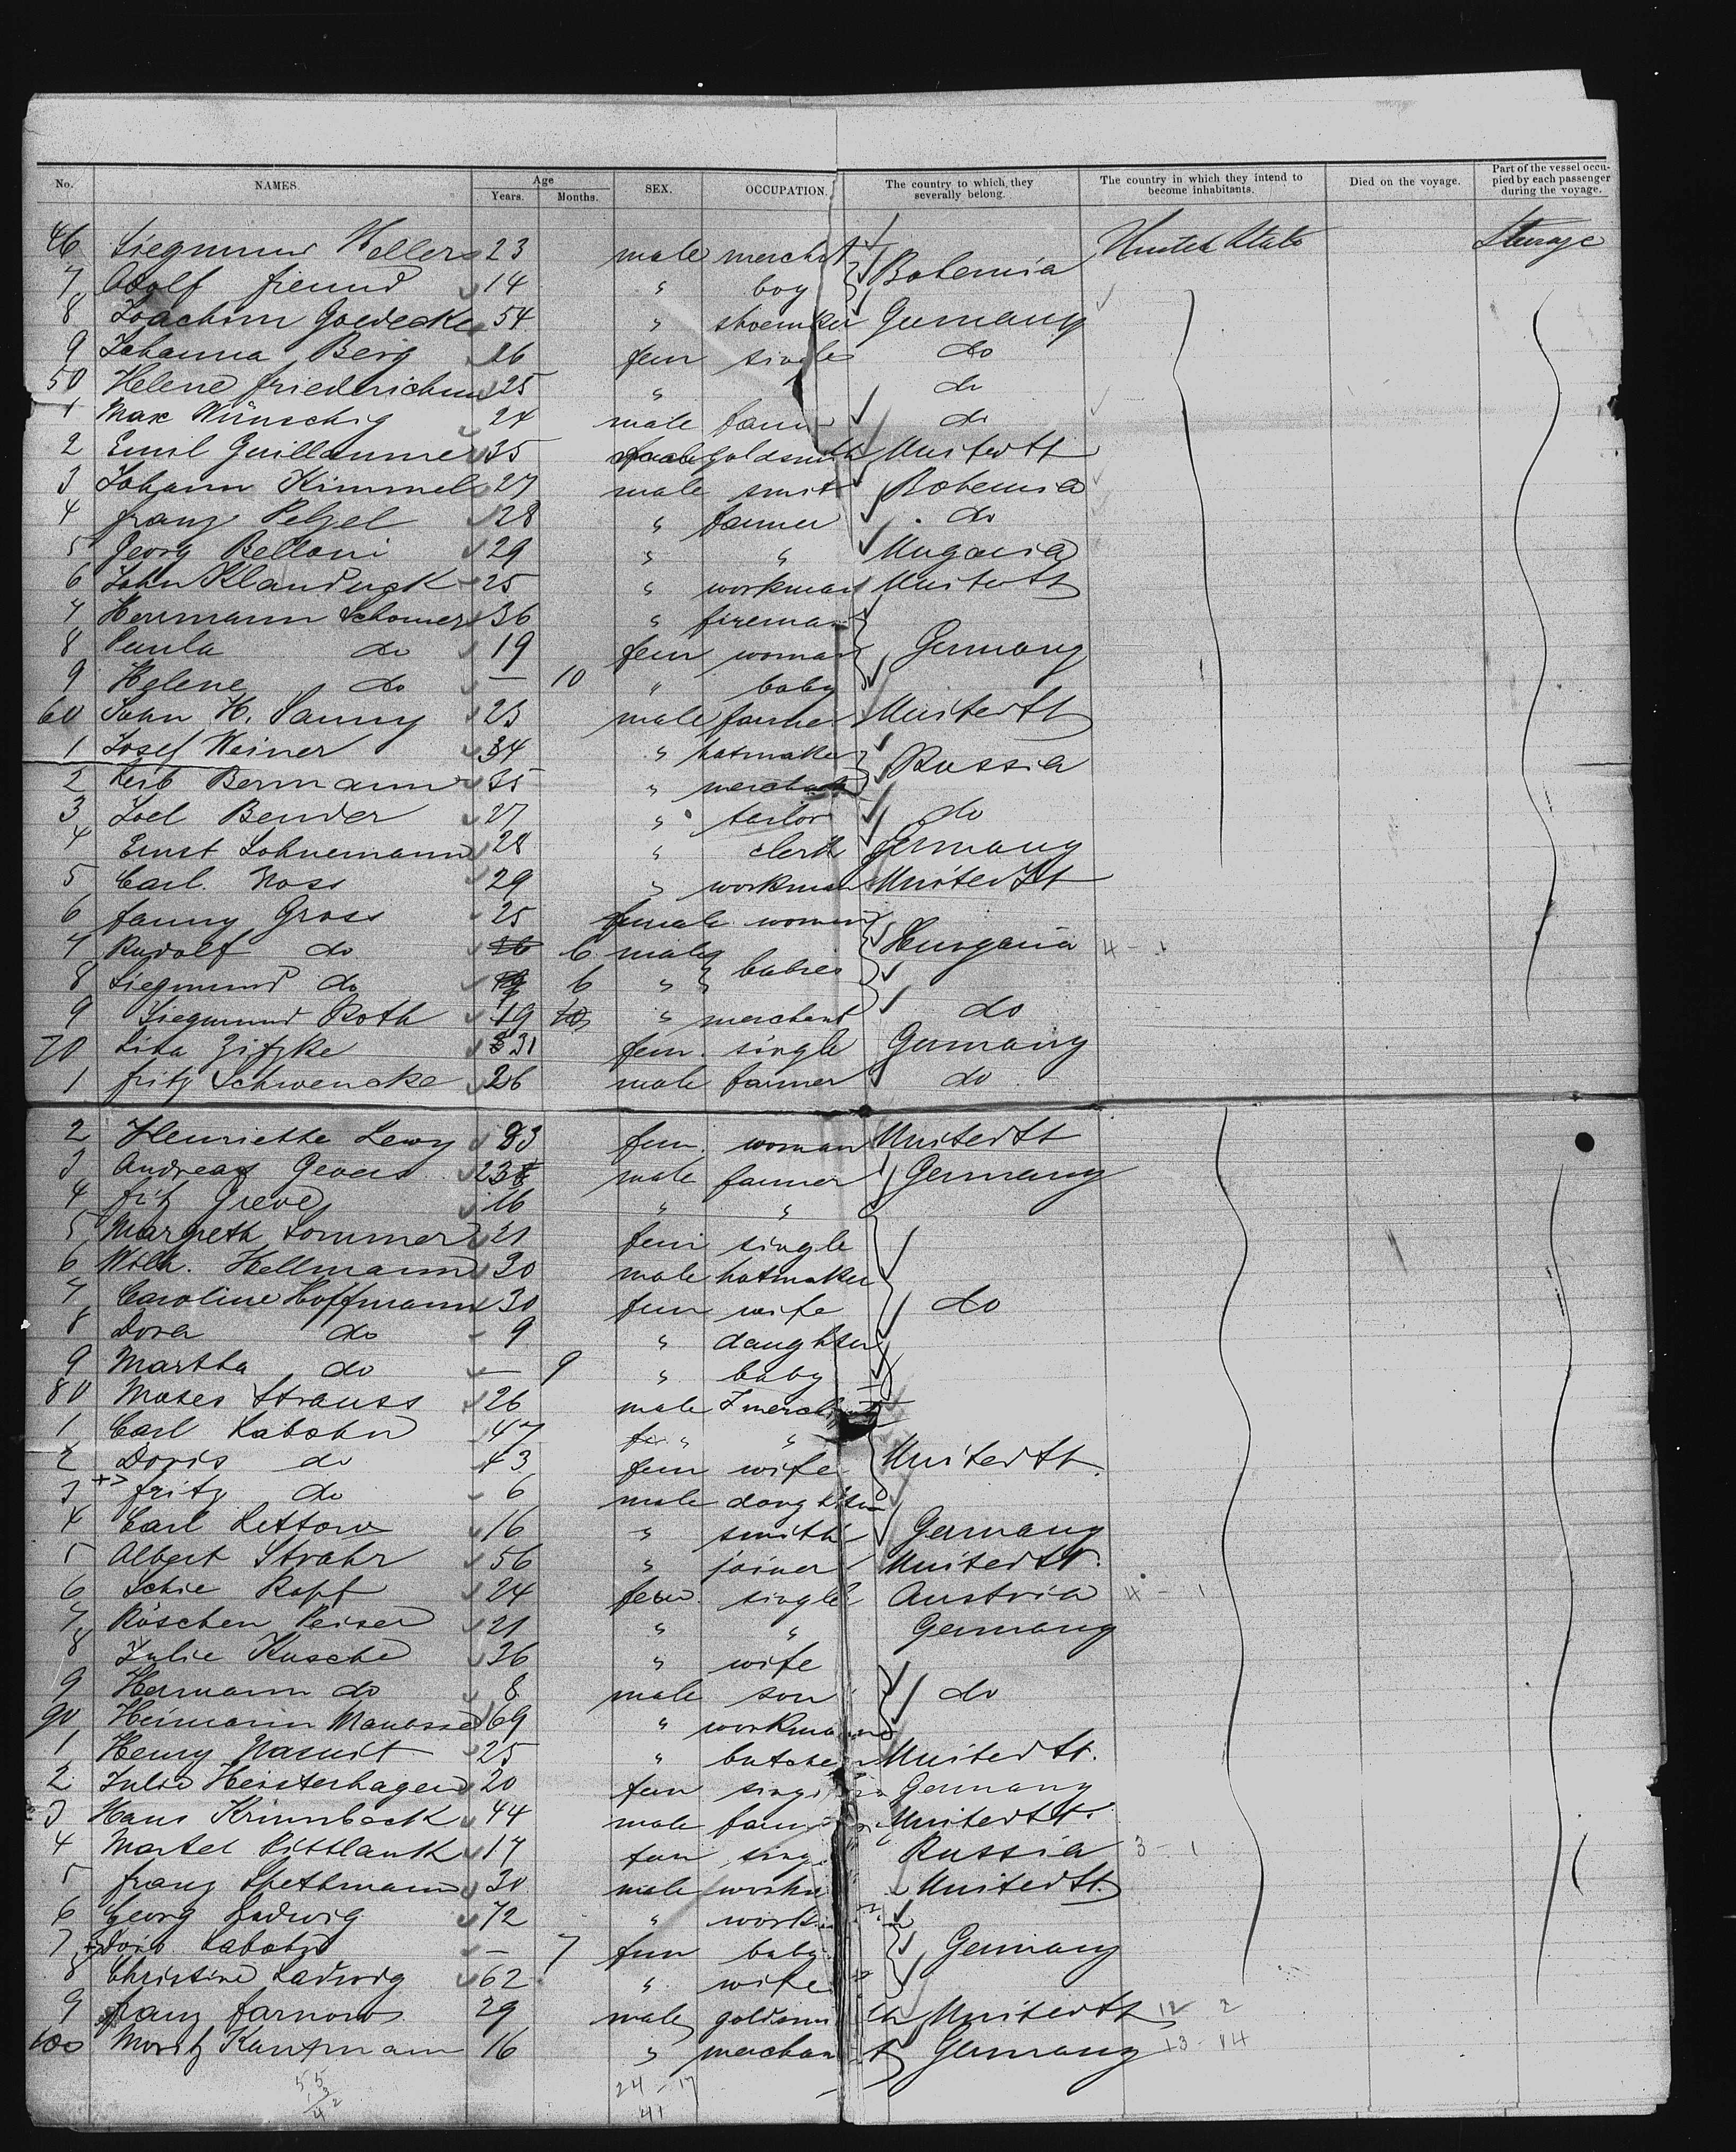 No. NAMES. Age Years. Months. SEX. OCCUPATION. The country to which they severally belong. The country in which they intend to become inhabitants. Died on the voyage. Part of the vessel occupied by each passenger during the voyage.
46 Siegmund Hellers 23 male mercht United States Steerage
7 Adolf freund 14 " boy Bohemia
8 Joachim Goedecke 54 " shoemker Germany
9 Johanna Berg 26 fem single do
50 Helene friederichsen 25 " do
1 Max Wünschig 24 male farmer do
2 Emil Guillaume 35 male goldsmith United St
3 Johann Kimmel 27 male smit Bohemia
4 franz Pelzel 28 " farmer do
5 Georg Belloni 29 " "
6 John 25 " workman United St
7 Herrmann Schomers 36 " fireman
8 Paula do 19 fem woman Germany
9 Helene do — 10 " baby
60 John H. 23 male farmer United St
1 Josef Weiner 34 " hatmaker Russia
2 Leib Bermann 35 " merchant
3 Joel Bender 27 " tailor do
4 Ernst Lohnemann 28 " clerk Germany
5 Carl Noss 29 " workman United St
6 fanny Gross 25 female woman
7 Rudolf do 6 male babies Hungaria 4 - 1
8 Siegmund do 6 "
9 Siegmund Roth 19 " merchant do
70 Lina 31 fem. single Germany
1 fritz Schwencke 26 male farmer do
2 Henriette Lewy 83 fem. woman United St
3 Andreas Gevers 23 male farmer Germany
4 fritz Greve 16 " "
5 Margreth Sommer 21 fem single
6 Wilh. Hellmann 30 male hatmaker
7 Caroline Hoffmann 30 fem wife do
8 Dora do 9 " daughter
9 Martha do — 9 " baby
80 Moses Strauss 26 male merchant
1 Carl Labohn 47 " "
2 Doris do 43 fem wife United St.
3 fritz do 6 male daughter
4 Carl Lettow 16 " smith Germany
5 Albert Strahr 56 " joiner United St.
6 Ropf 24 fem. single Austria 4 - 1
7 Röschen Peiser 21 " " Germany
8 Julie Kusche 36 " wife
9 Hermann do 8 male son do
90 Heimann Manasse 69 " workman
1 Henry 25 " butcher United St.
2 Julie Heisterhagen 20 fem single Germany
3 Hans Krinnbeck 44 male farmer United St.
4 17 fem sing Russia 3 - 1
5 franz Spethmann 30 male workm United St.
6 Georg Ladwig 72 " work
7 Labohn — 7 fem baby Germany
8 Christine Ladwig 62 " wife
9 franz farnow 29 male goldsmith United St 12 2
100 Moritz Kaufmann 16 " merchant Germany 13 - 14
24 - 17
41